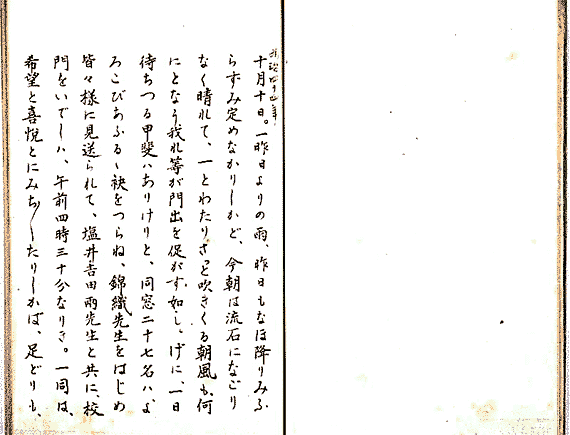 明治四十四年
十月十日。一昨日よりの雨、昨日もなほ降りみふ
らずみ定めなかりしかど、今朝は流石になごり
なく晴れて、一とわたりさっと吹きくる朝風も、何
にとなう我れ等が門出を促がす如し、げに、一日
待ちつる甲斐ハありけりと、同窓二十七名ハ、よ
ろこびあふるゝ袂をつらね、錦織先生をはじめ
皆々様に見送られて、塩井吉田両先生と共に、校
門をいでしハ、午前四時三十分なりき。一同は、
希望と喜悦とにみち／＼たりしかば、足どりも、